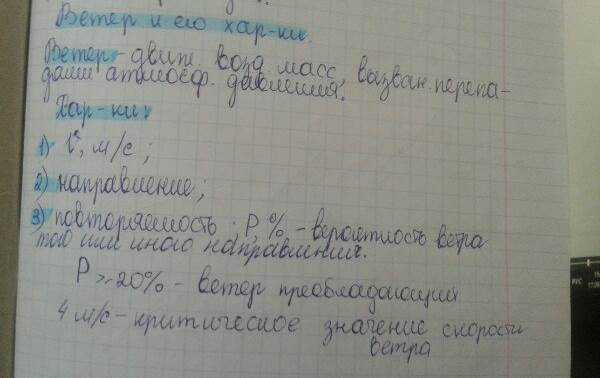 Ветер и его хар-ки.
Ветер - движ. возд. масс, вызван. перепа-
дами атмосф. давления.
Хар-ки:
1) V, м/с;
2) направление;
3) повторяемость P, % - вероятность ветра
того или иного направления.
P >~20% - ветер преобладающий
4 м/с - критическое значение скорости
ветра
РУС